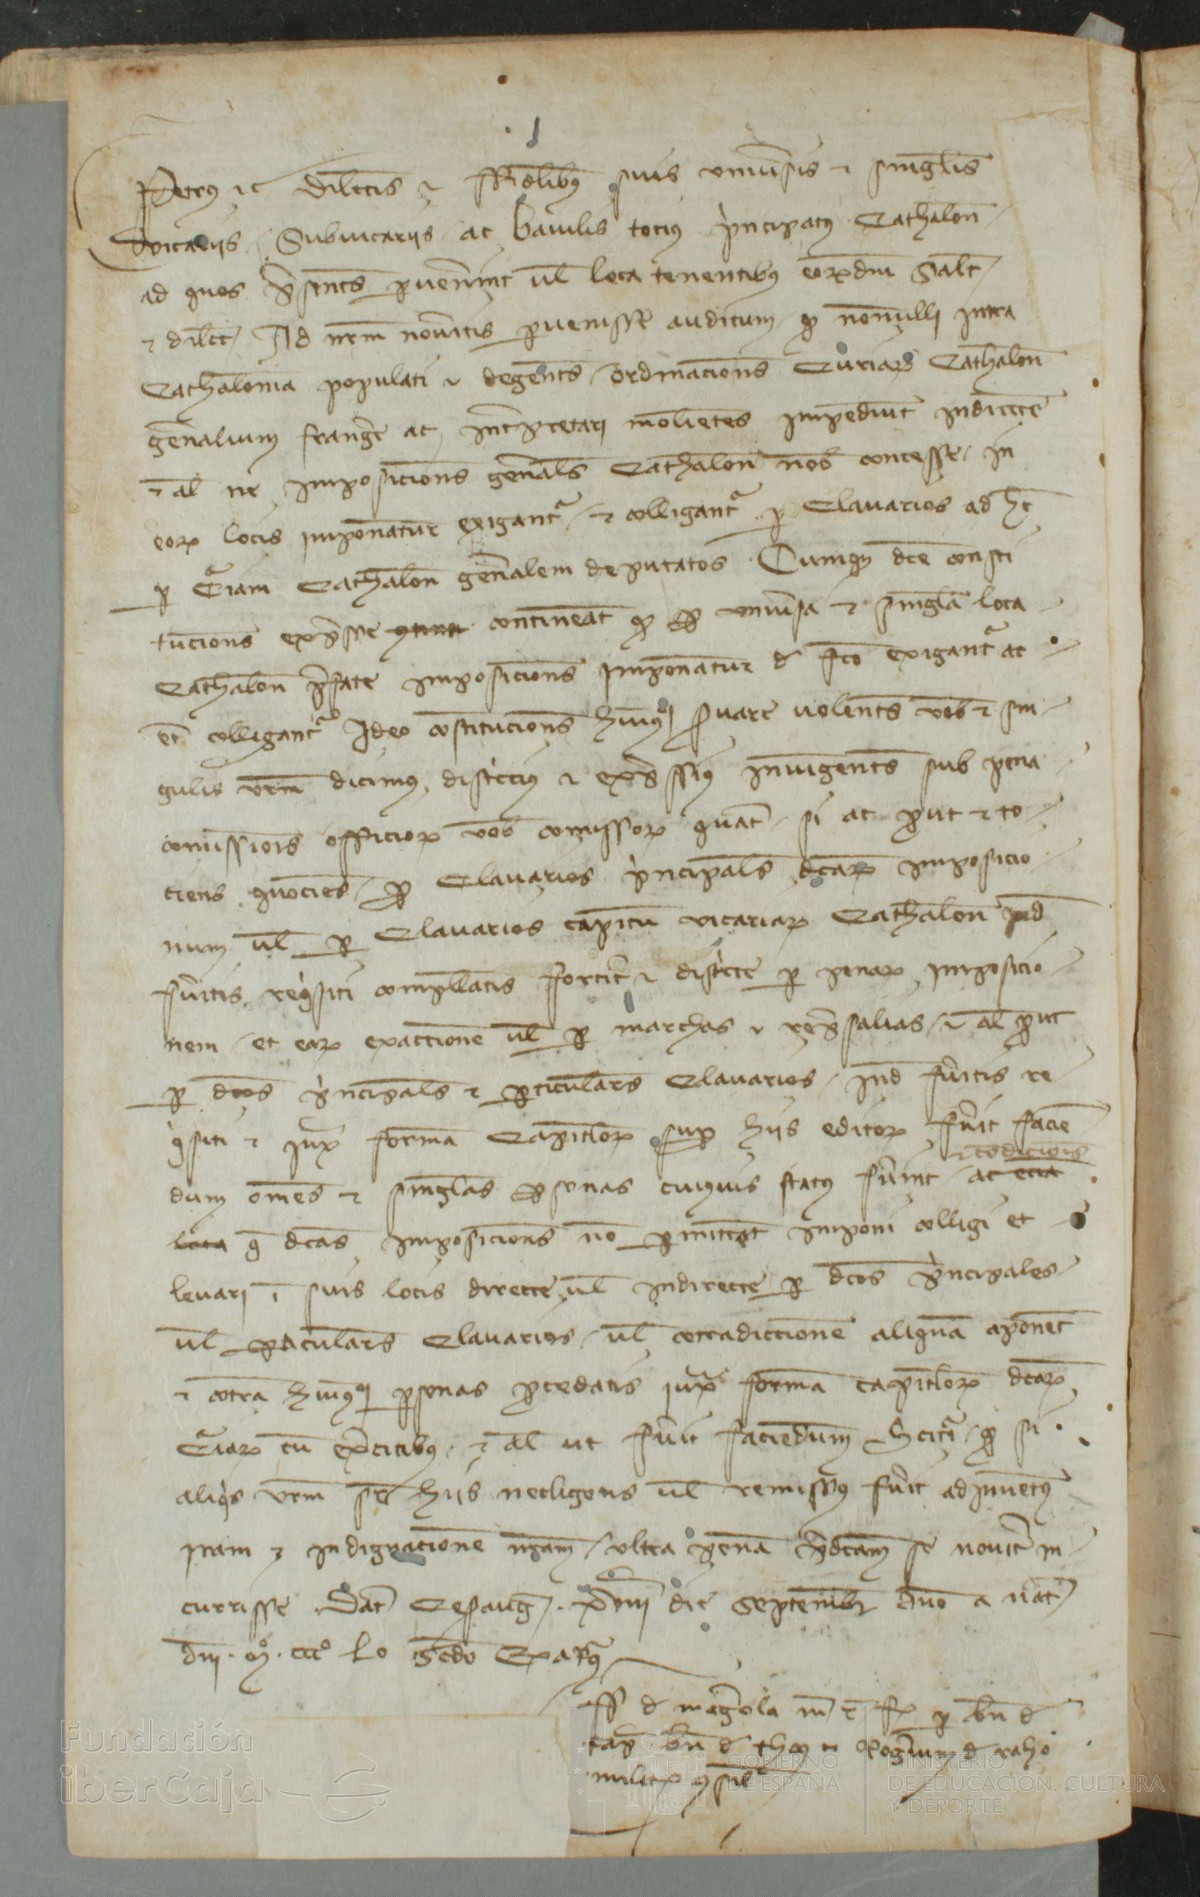 Petrus etc dilectis et fidelibus suis universis et singulis
vicariis Subvicariis ac baiulis tocius principatus Cathalon
ad quos presentes pervenerint vel loca tenentibus eorumdem Salt
et dilect Ad nostrum noveritis pervenisse auditum quod nonnulli intra
Cathalonia populati et degentes ordinaciones Curiarum Cathalon
generalium frangere ac interpretari molientes impediunt indirecte
et al ne imposiciones generales Cathalon nobis concesse in
eorum locis imponantur exigantur et colligantur per Clavarios ad hec
per Curiam Cathalon generalem deputatos Cumque dicte consti
tuciones expresse contineant quod per universa et singula loca
Cathalon prefate imposiciones imponantur de facto exigantur ac
et colligantur Ideo constituciones huiusmodi servare volentes vobis et sin
gulis vestrum dicimus districcius et expressius iniungentes sub pena
comissionis officiorum vobis comissorum quat si ac prout et to
ciens quociens per Clavarios principales dictarum imposicio
num vel per Clavarios capitum vicariarum Cathalon inde
fueritis requisiti compellatis fortiter et districte per penarum imposicio
nem et earum exaccionem vel per marchas et represalias et al prout
per dictos principales et particulares Clavarios inde fueritis re
quisiti et iuxta formam Capitulorum super hiis editorum fuerit facien
et condicionis
dum omnes et singulas personas cuiusvis status fuerint ac ecia
loca que dictas imposiciones non permittent imponi colligi et
levari in suis locis directe vel indirecte per dictos principales
vel particulares Clavarios vel contradiccionem aliquam aponent
et contra huiusmodi personas procedatis iuxta formam capitulorum dictarum
Curiarum cum exercitibus et al ut fuerit faciendum Scituri quod si
aliquis vestrum super hiis necligens vel remissus fuerit adinventus
iram et indignacionem nostram ultra penam predictam se noverit in
currisse Dat Cesaraug XVIII die Septembr anno a nat
dni Mo CCCo Lo Secundo Exa Rus